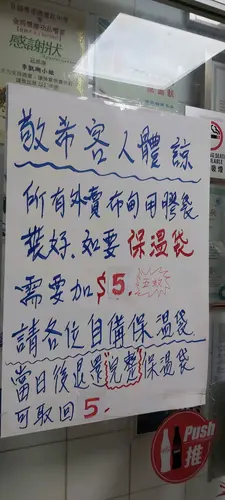 感謝狀
敬希客人體諒
所有外賣布甸用膠袋
裝好.如要保溫袋
需要加$5.
請各位自備保溫袋
當日後退還"完整"保溫袋
可取回5.
Push
推